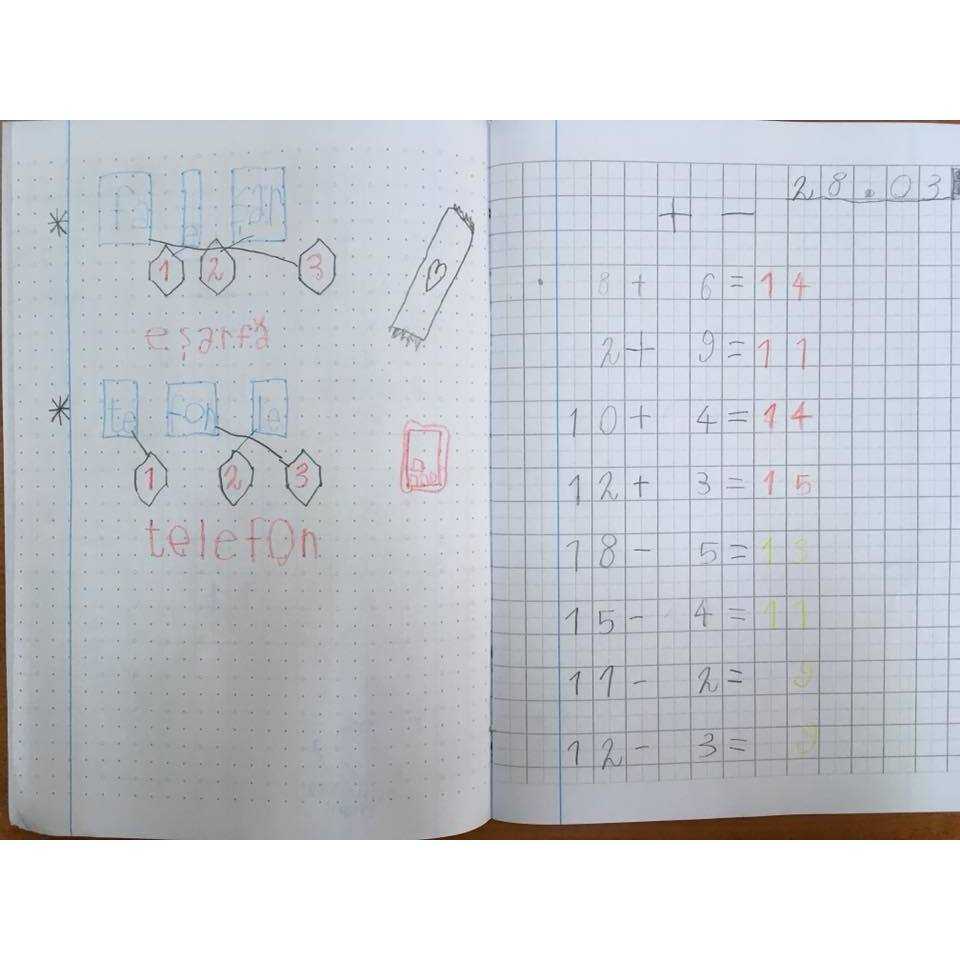 fă e șar
1 2 3
eșarfă
te fon le
1 2 3
telefon
28.03
+ -
8 + 6 = 14
2 + 9 = 11
10 + 4 = 14
12 + 3 = 15
18 - 5 = 13
15 - 4 = 11
11 - 2 = 9
12 - 3 = 9